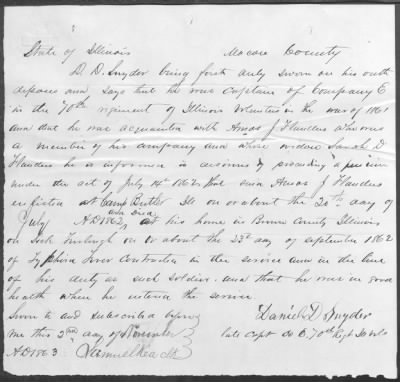 State of Illinois Macon County
D. D. Snyder being first duly sworn on his oath
deposes and says that he was Captain of Company E
in the 70th regiment of Illinois Volunteers in the war of 1861
and that he was acquainted with Amos J Flanders who was
a member of his company and whose widow Sarah D
Flanders he is informed is desirous of procuring a pension
under the act of July 14th 1862 that said Amos J Flanders
enlisted at Camp Butler Ills on or about the 20th day of
July AD 1862, and Died at his home in County Illinois
on Sick Furlough on or about the 23d day of september 1862
of fever Contracted in the service and in the line
of his duty as such soldier. and that he was in good
health when he entered the service
Sworn to and subscribed before
me this 2nd day of November Daniel D Snyder
AD 1863 Samuel late Capt Co E. 70th Regt Ills Vols